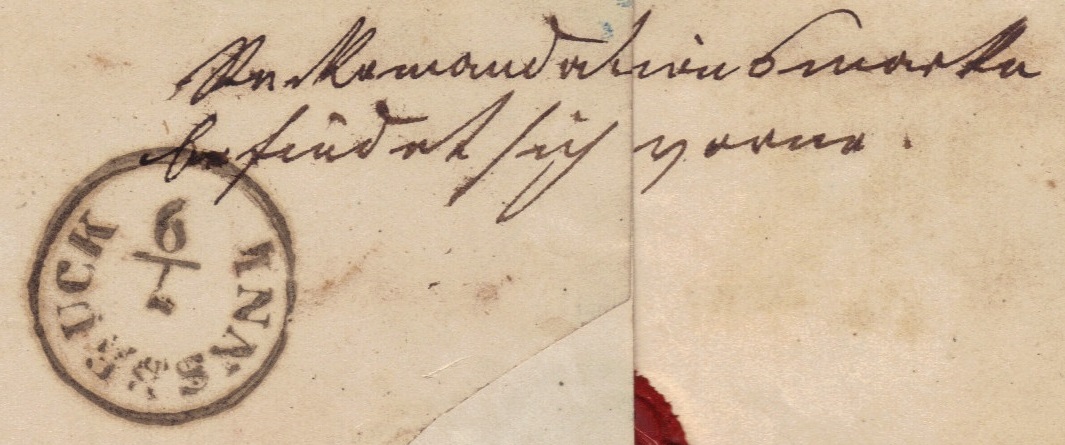 Reckomandationsmarke
befindet sich vorne.
INNSBRUCK
6
1